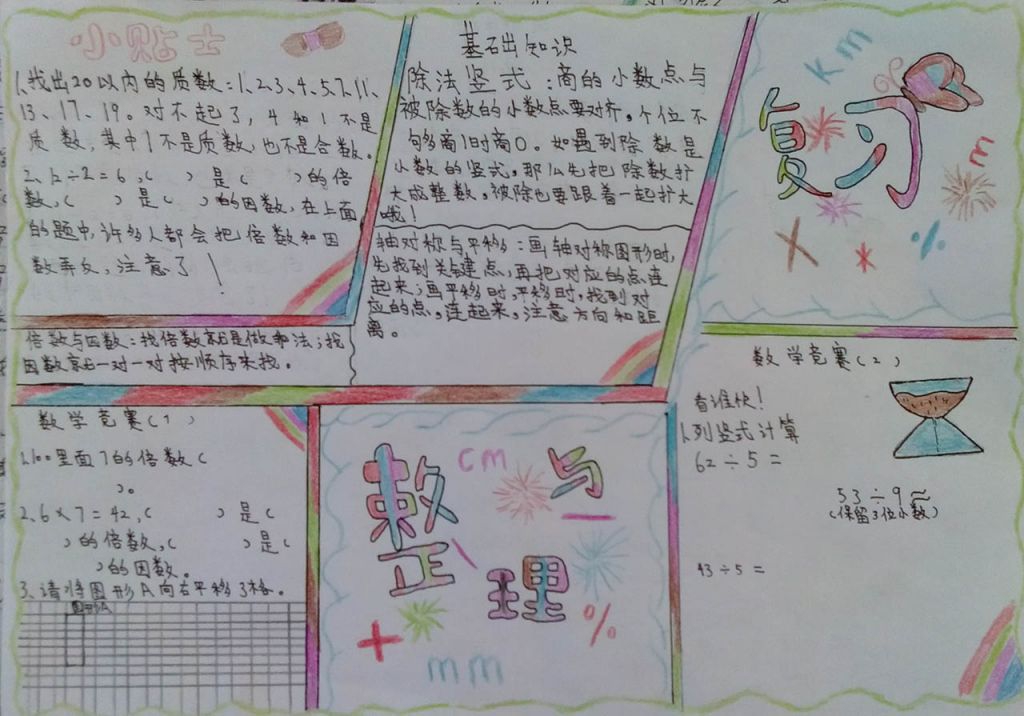 小贴士
1、找出20以内的质数:1、2、3、4、5、7、11、
13、17、19。对不起了,4和1不是
质数,其中1不是质数,也不是合数。
2、12÷2=6,( )是( )的倍
数,( )是( )的因数,在上面
的题中,许多人都会把倍数和因
数弄反,注意了!
倍数与因数:找倍数就是做乘法;找
因数就一对一对按顺序来找。
基础知识
除法竖式:商的小数点与
被除数的小数点要对齐。个位不
够商1时商0。如遇到除数是
小数的竖式,那么先把除数扩
大成整数,被除也要跟着一起扩大
哦!
轴对称与平移:画轴对称图形时,
先找到关键点,再把对应的点连
起来;画平移时,平移时,找到对
应的点,连起来,注意方向和距
离。
Km
复习
m
×
*
÷
数学竞赛(1)
1、100里面7的倍数(
)。
2、6×7=42,( )是(
)的倍数,( )是(
)的因数。
3、请将图形A向右平移3格。
图形A
整与
cm
整理
+
%
mm
数学竞赛(2)
看谁快!
1、列竖式计算
62÷5=
53÷9≈
(保留3位小数)
43÷5=